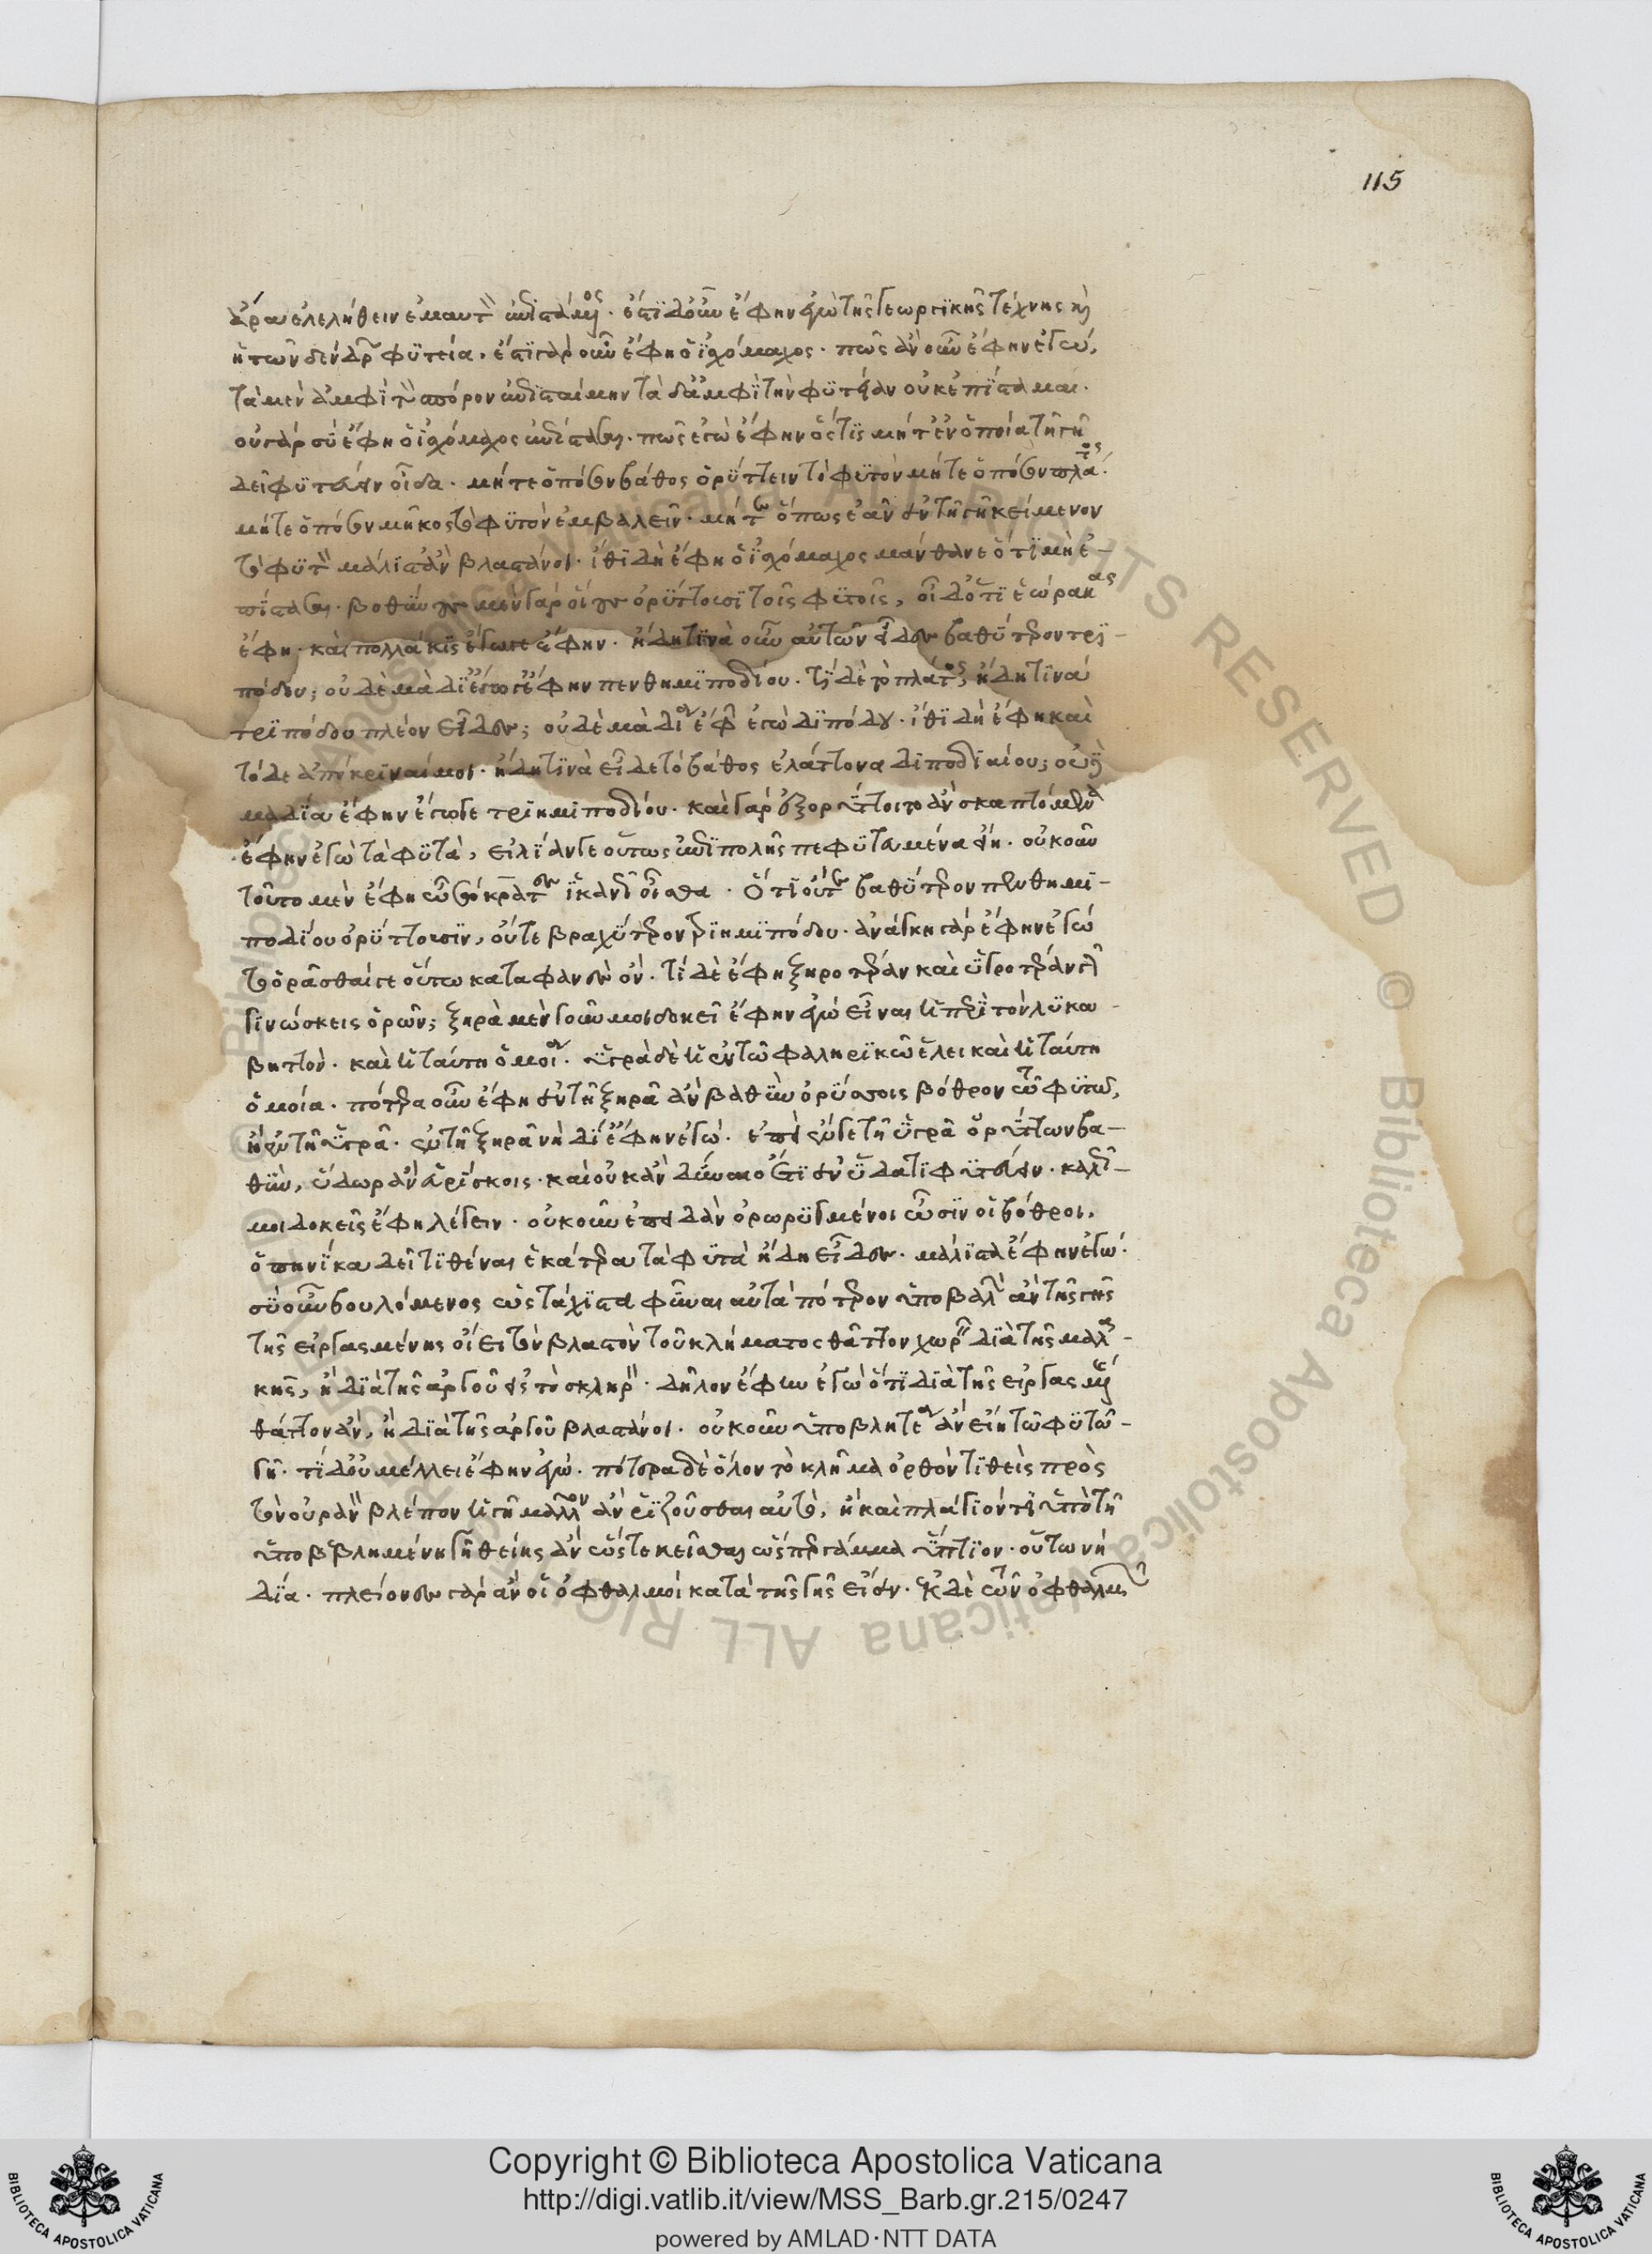 115
ἄρα ἐλελήθειν ἐμαυτὸν ἐπιστάμενος. ἔστι δ' οὖν ἔφην ἐγὼ τῆς γεωργικῆς τέχνης καὶ
ἡ τῶν δένδρων φυτεία. ἔστι γὰρ οὖν ἔφη ὁ ἰσχόμαχος. πῶς ἂν οὖν ἔφην ἐγώ,
τὰ μὲν ἀμφὶ τὸν σπόρον ἐπισταίμην τὰ δ' ἀμφὶ τὴν φυτείαν οὐκ ἐπίσταμαι.
οὐ γὰρ σὺ ἔφη ὁ ἰσχόμαχος ἐπίστασαι. πῶς ἐγὼ ἔφην ὅστις μήτ' ἐν ὁποίᾳ τῇ γῇ
δεῖ φυτεύειν οἶδα. μήτε ὁπόσον βάθος ὀρύττειν τὸ φυτὸν μήτε ὁπόσον πλάτος.
μήτε ὁπόσον μῆκος τὸ φυτὸν ἐμβαλεῖν. μήτε ὅπως ἐὰν ἐν τῇ γῇ κείμενον
τὸ φυτὸν μάλιστ' ἂν βλαστάνοι. ἴθι δὴ ἔφη ὁ ἰσχόμαχος μάνθανε ὅτι μὴ ἐ-
πίστασαι. βοθύνους μὲν γὰρ οἵους ὀρύττουσι τοῖς φυτοῖς, οἶδ' ὅτι ἑώρακας
ἔφη. καὶ πολλάκις ἔγωγε ἔφην. ἤδη τινὰ οὖν αὐτῶν εἶδες βαθύτερον τρι-
πόδου; οὐδὲ μὰ δί' ἔγωγε ἔφην πενθημιποδίου. τί δὲ τὸ πλάτος, ἤδη τινὰ
τριπόδου πλέον εἶδες; οὐδὲ μὰ δία ἔφην ἐγὼ διπόδου. ἴθι δὴ ἔφη καὶ
τόδε ἀπόκριναί μοι. ἤδη τινὰ εἶδε τὸ βάθος ἐλάττονα διποδιαίου; οὐ
μὰ δία ἔφην ἔγωγε τριημιποδίου. καὶ γὰρ ἐξορύττοιτο ἂν σκαπτόμενα
ἔφην ἐγὼ τὰ φυτά, εἰ λίαν γε οὕτως ἐπιπολῆς πεφυτευμένα εἴη. οὐκοῦν
τοῦτο μὲν ἔφη ὦ σώκρατες ἱκανῶς οἶσθα. ὅτι οὔτε βαθύτερον πενθημι-
ποδίου ὀρύττουσιν, οὔτε βραχύτερον τριημιπόδου. ἀνάγκη γὰρ ἔφην ἐγὼ
τὸ ὁρᾶσθαί γε οὕτω καταφανὲς ὄν. τί δὲ ἔφη ξηροτέραν καὶ ὑγροτέραν γῆν
γινώσκεις ὁρῶν; ξηρὰ μὲν γοῦν μοι δοκεῖ ἔφην ἐγὼ εἶναι ἡ περὶ τὸν λυκα-
βηττόν. καὶ ἡ ταύτῃ ὁμοία. ὑγρὰ δὲ ἡ ἐν τῷ φαληρικῷ ἕλει καὶ ἡ ταύτῃ
ὁμοία. πότερα οὖν ἔφη ἐν τῇ ξηρᾷ ἂν βαθὺν ὀρύττοις βόθρον τῷ φυτῷ,
ἢ ἐν τῇ ὑγρᾷ. ἐν τῇ ξηρᾷ νὴ δί' ἔφην ἐγώ. ἐπεὶ ἔν γε τῇ ὑγρᾷ ὀρύττων βα-
θύν, ὕδωρ ἂν εὑρίσκοις. καὶ οὐκ ἂν δύναιο ἔτι ἐν ὕδατι φυτεύειν. καλῶς
μοι δοκεῖς ἔφη λέγειν. οὐκοῦν ἐπειδὰν ὀρωρυγμένοι ὦσιν οἱ βόθροι,
ὁπηνίκα δεῖ τιθέναι ἑκάτερα τὰ φυτὰ ἤδη εἶδες. μάλιστα ἔφην ἐγώ.
σὺ οὖν βουλόμενος ὡς τάχιστα φῦναι αὐτὰ πότερον ὑποβαλὼν ἂν τῆς γῆς
τῆς εἰργασμένης οἴει τὸν βλαστὸν τοῦ κλήματος θᾶττον χωρεῖν διὰ τῆς μαλα-
κῆς, ἢ διὰ τῆς ἀργοῦ εἰς τὸ σκληρόν. δῆλον ἔφην ἐγὼ ὅτι διὰ τῆς εἰργασμένης
θᾶττον ἄν, ἢ διὰ τῆς ἀργοῦ βλαστάνοι. οὐκοῦν ὑποβλητέα ἂν εἴη τῷ φυτῷ
γῆ. τί δ' οὐ μέλλει ἔφην ἐγώ. πότερα δὲ ὅλον τὸ κλῆμα ὀρθὸν τιθεὶς πρὸς
τὸν οὐρανὸν βλέπον ἡγῇ μᾶλλον ἂν ῥιζοῦσθαι αὐτό, ἢ καὶ πλάγιόν τι ὑπὸ τῇ
ὑποβεβλημένῃ γῇ θείης ἂν ὥστε κεῖσθαι ὥσπερ γάμμα ὕπτιον. οὕτω νὴ
δία. πλείονες γὰρ ἂν οἱ ὀφθαλμοὶ κατὰ τῆς γῆς εἶεν. ἐκ δὲ τῶν ὀφθαλμῶν
Copyright © Biblioteca Apostolica Vaticana
http://digi.vatlib.it/view/MSS_Barb.gr.215/0247
powered by AMLAD·NTT DATA